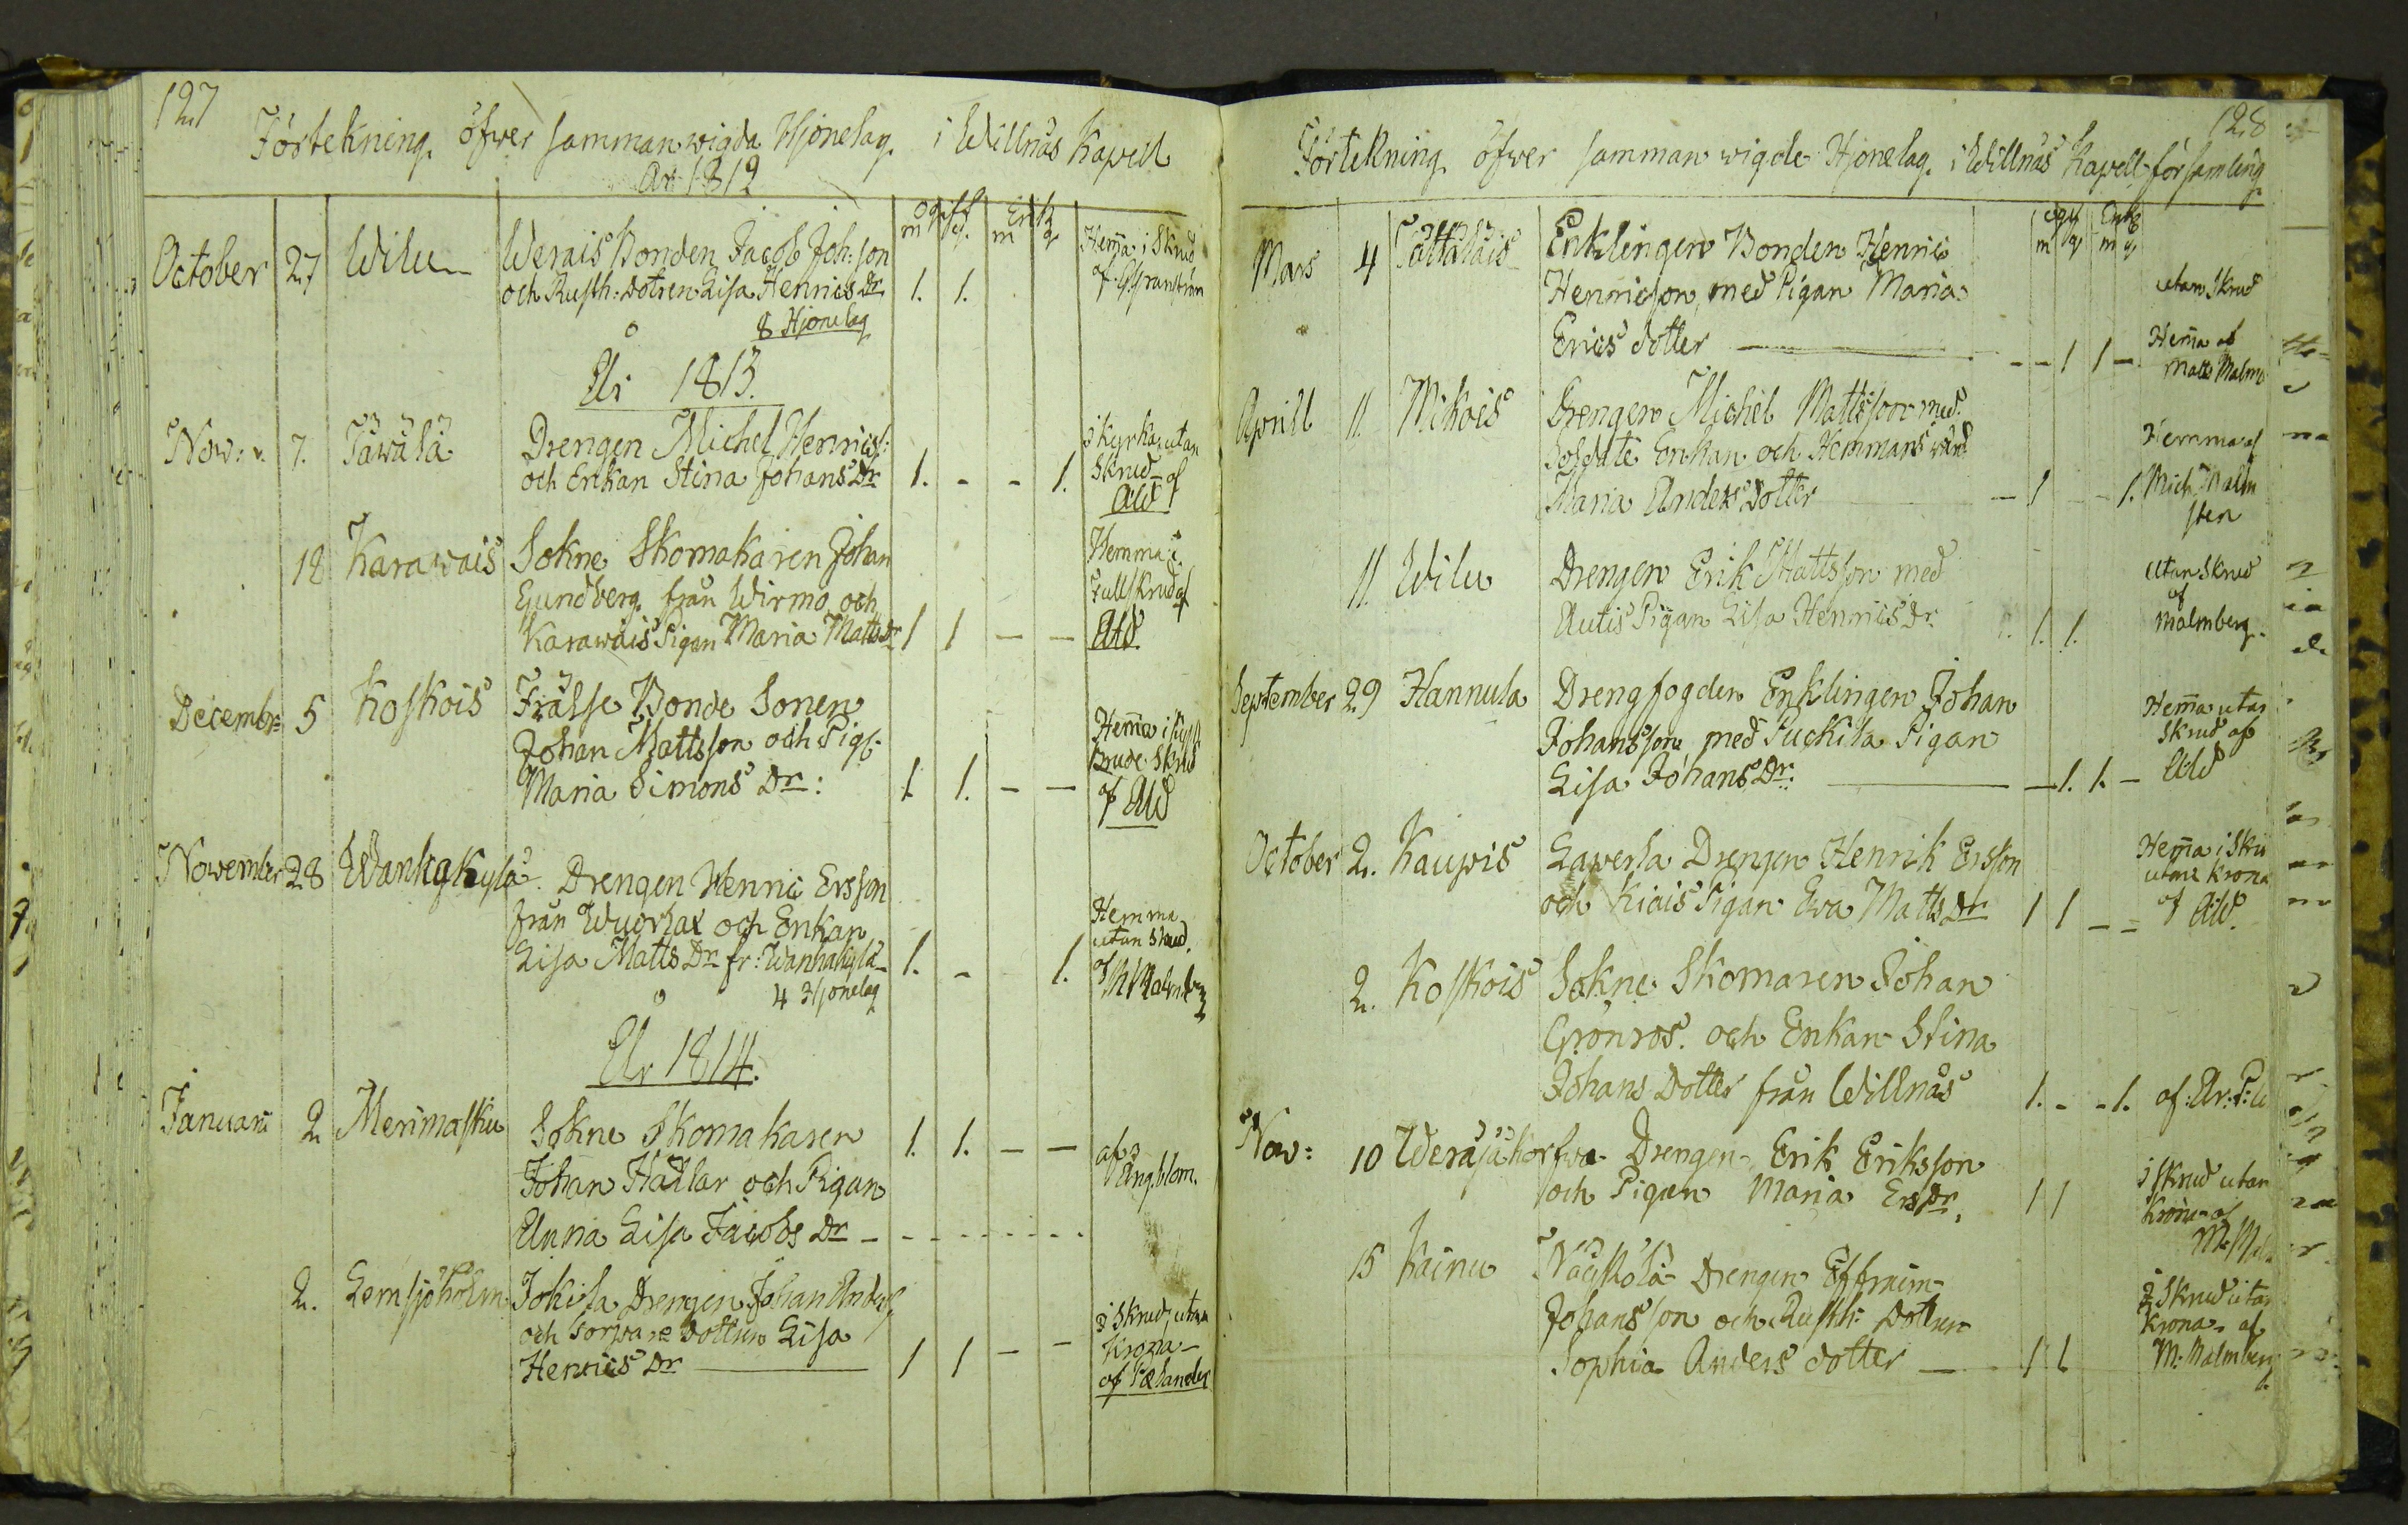 127
Förtekning öfwer samman wigda Hjonelag i Willnäs Kapell
År 1812
ogift Enk
m q m q
October 27 Wilu Werais Bonden Jacob Joh:son Hem̄a i Skrud
och Rusth: dotren Lisa Henrics Dr 1. 1. af Granström
8 Hjonelag
År 1813.
Now: 7. Täwälä Drengen Michel Henrics: i Kyrkan utan
och Enkan Stina Johans Dr 1. - - 1. Skrud af
Ald
18 Karawais Sokne Skomakaren Johan Hemma i
Lundberg från Wirmo och Full skrud af
Karawais Pigan Maria Matts Dr 1 1 - - Ald.
Decembr: 5 Koskois Frälse Bonde Sonen
Johan Mattsson och Pig: Hem̄a i full
Maria Simons Dr: 1. 1. - - Brude Skrud
af Ald
November 28 Wanhakylä Drengen Henric Ersson
från Wuorlax och Enkan Hemma
Lisa Matts Dr fr: Wanhakylä 1. - 1. utan Skrud.
4 Hjonelag af M Malmberg
År 1814.
Januari 2 Merimasku Sokne Skomakaren 1. 1. - - af
Johan Hadlar och Pigan Engblom.
Anna Lisa Jacobs Dr - - - - - -
2. Lemsjöholm Jokila Drengen Johan Anders:
och Torpare dottren Lisa i Skrud utan
Henrics Dr 1 1 - - Krona
af
128
Förtekning öfwer samman wigde Hjonelag i Willnäs Kapell församling
ogift Enk
m q m q
Mars 4 Enklingen Bonden Henric
Henricsson, med Pigan Maria utan Skrud
Erics dotter - - 1 1 - Hem̄a af
Matts Malmb
Aprill 11. Mikois Drengen Michel Mattsson med
Soldate Enkan och Hemmans Hemma af
Maria Anders Dotter - 1 - 1. Mich. Malm
sten
11 Wilu Drengen Erik Mattsson med utan Skrud
Autis Pigan Lisa Henrics Dr 1. 1. af
Malmberg.
September 29 Hannula Drengfogden Enklingen Johan Hem̄a utan
Johansson med Puckila Pigan Skrud af
Lisa Johans Dr: - 1. 1. - Ald
October 2. Kaupis Lawerla Drengen Henrik Ersson Hem̄a i Skru
och Kiais Pigan Ewa Matts Dr 1 1 - = utan Krona
af Ald.
2. Koskois Sokne Skomaren Johan
Grönros. och Enkan Stina
Johans Dotter från Willnäs 1. - - 1. af: Ar:
Now: 10 Weräjäkorfwa Drengen Erik Eriksson
och Pigan Maria Ers Dr, 1 1 i skrud utan
Krona af
15 Kainu Drengen Effraim
Johansson och Rusth: Dottren i Skrud utan
Sophia Anders dotter 1 1 Krona af
M: Malmberg